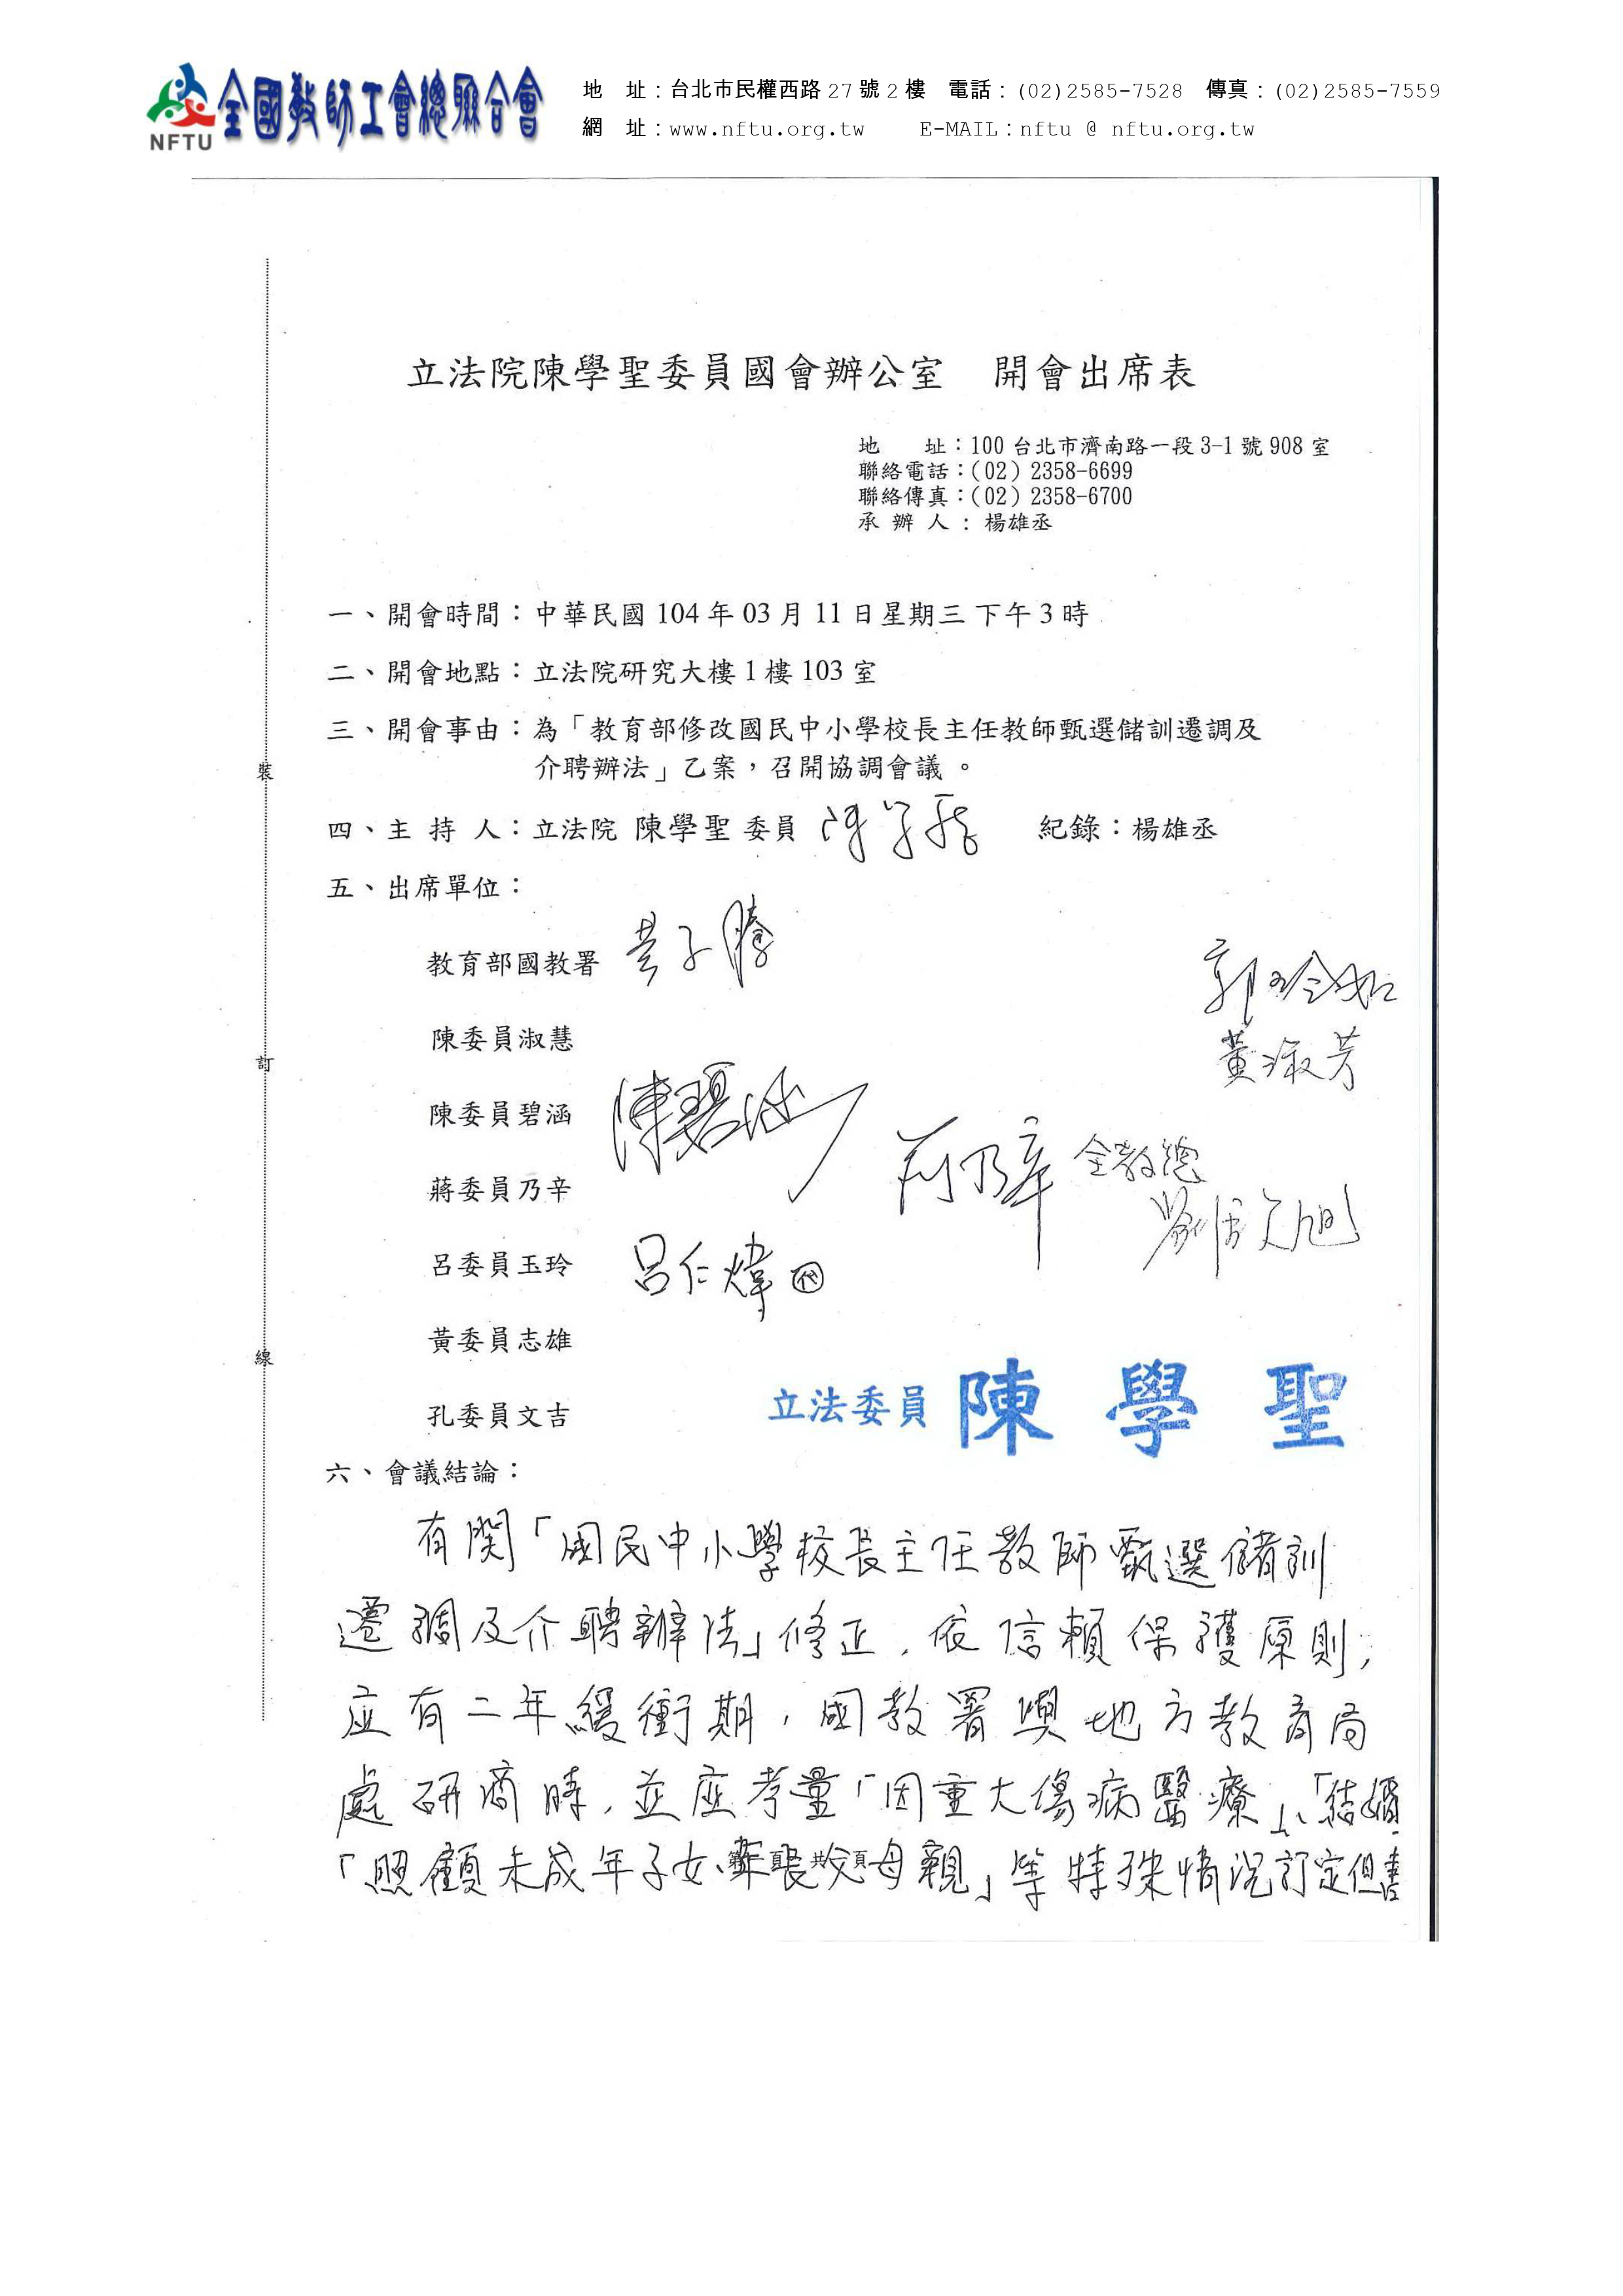 NFTU 全國教師工會總聯合會
地 址：台北市民權西路27號2樓 電話：(02)2585-7528 傳真：(02)2585-7559
網 址：www.nftu.org.tw E-MAIL：nftu @ nftu.org.tw
立法院陳學聖委員國會辦公室 開會出席表
地 址：100 台北市濟南路一段 3-1 號 908 室
聯絡電話：(02) 2358-6699
聯絡傳真：(02) 2358-6700
承 辦 人 : 楊雄丞
一、開會時間：中華民國 104 年 03 月 11 日星期三 下午 3 時
二、開會地點：立法院研究大樓 1 樓 103 室
三、開會事由：為「教育部修改國民中小學校長主任教師甄選儲訓遷調及
介聘辦法」乙案，召開協調會議。
裝
四、主 持 人：立法院 陳學聖 委員 陳學聖 紀錄：楊雄丞
五、出席單位：
教育部國教署 黃子騰
郭玲如
陳委員淑慧
黃淑芳
訂
陳委員碧涵 陳碧涵
蔣委員乃辛 蔣乃辛 全教總
呂委員玉玲 呂仁煒 代
黃委員志雄
線
孔委員文吉
立法委員 陳學聖
六、會議結論：
有関「國民中小學校長主任教師甄選儲訓
遷調及介聘辦法」修正，依信賴保護原則，
应有二年緩衝期，國教署與地方教育局
處研商時，並應考量「因重大傷病醫療」、「結婚」
「照顧未成年子女、年長父母親」等特殊情況訂定但書